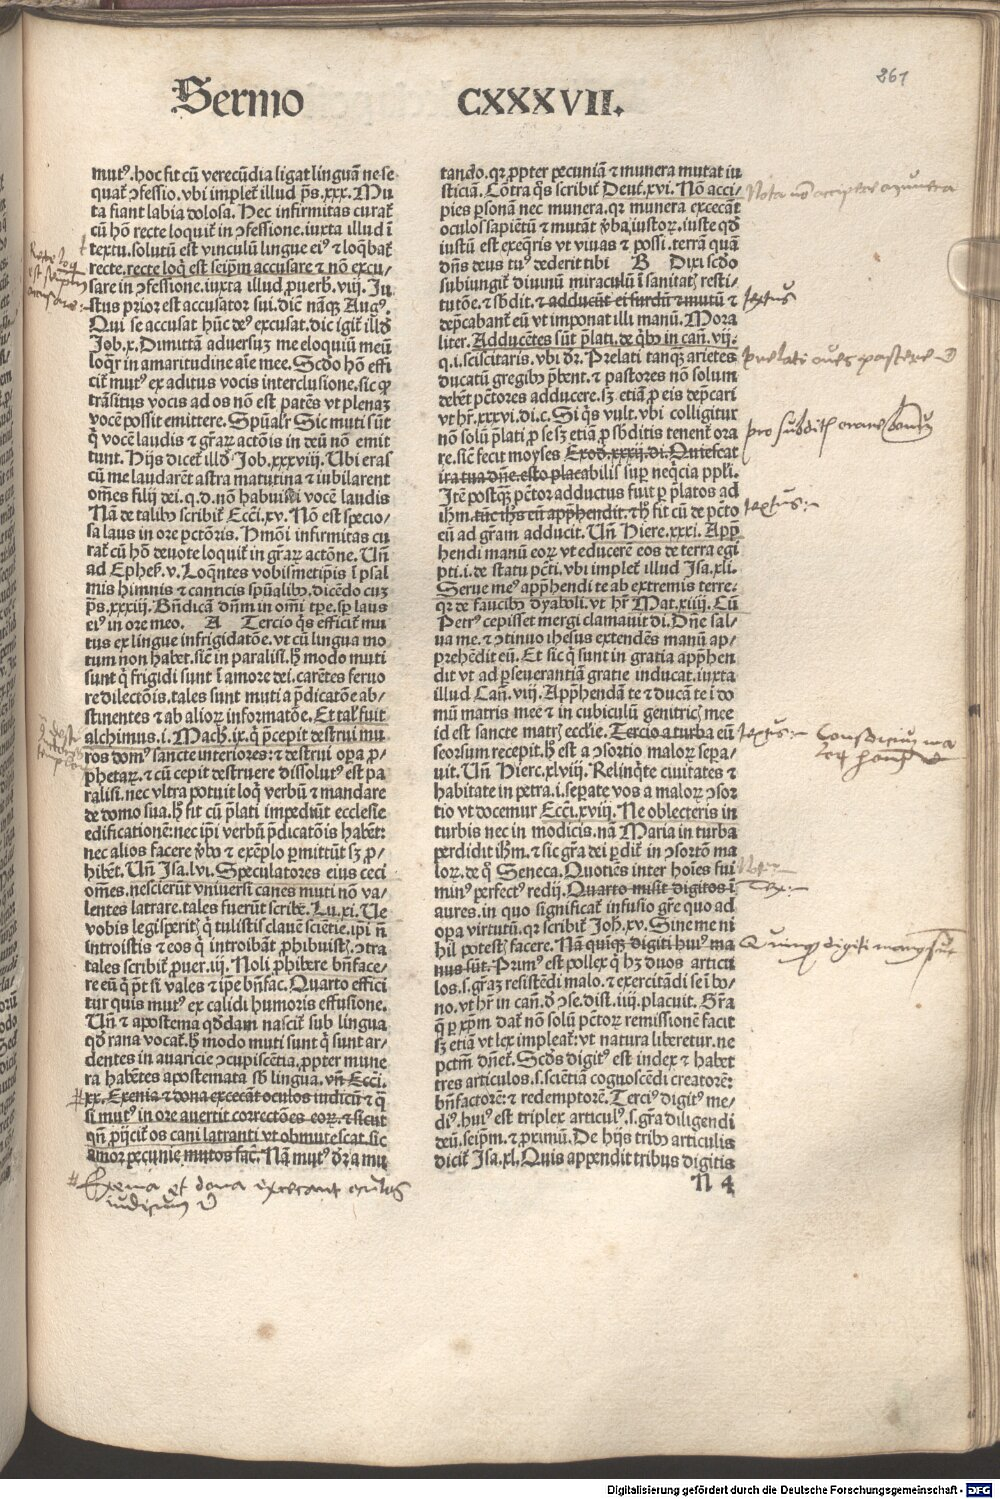 261
Sermo CXXXVII.
mutꝰ. hoc fit cū verecūdia ligat linguā ne se
quat᷑ ↄfessio. vbi implet᷑ illud p̄s. xxx. Mu
ta fiant labia dolosa. Hec infirmitas curat᷑
cū hō recte loquit᷑ in ↄfessione. iuxta illud ī
textu. solutū est vinculū lingue eiꝰ ⁊ loq̄bat᷑
recte. recte loq̄ est seip̄m accusare ⁊ nō excu/
sare in ↄfessione. iuxta illud ꝓuerb. viij. Ju
stus prior est accusator sui. dic̄ nāqꝫ Augꝰ.
Qui se accusat hūc deꝰ excusat. dic igit᷑ illđ
Job. x. Dimittā aduersuꝫ me eloquiū meū
loqr̄ in amaritudine aīe mee. Scđo hō effi
cit᷑ mutꝰ ex aditus vocis interclusione. sic ꝙ
trāsitus vocis ad os nō est patēs vt plenaꝫ
vocē possit emittere. Sp̄ualr̄ Sic muti sūt
q̇ vocē laudis ⁊ gr̄aꝝ actōis in deū nō emit
tunt. Hijs dicet᷑ illđ Job. xxxviij. Ubi eras
cū me laudarēt astra matutina ⁊ iubilarent
om̄es filij dei. q. d. nō habuisti vocē laudis
Nā de talibꝰ scribit᷑ Ecci. xv. Nō est specio/
sa laus in ore pctōris. Hmōi infirmitas cu
rat᷑ cū hō deuote loquit᷑ in gr̄aꝝ actōne. Un̄
ad Ephes. v. Loq̄ntes vobismetip̄is ī psal
mis himnis ⁊ canticis sp̄ualibꝰ. dicēdo cuꝫ
p̄s. xxxiij. Bn̄dicā dn̄m in om̄i tp̄e. sp̄ laus
eiꝰ in ore meo. A Tercio q̇s efficit᷑ mu
tus ex lingue infrigidatōe. vt cū lingua mo
tum non habet. sic̄ in paralisi. h̄ modo muti
sunt q̇ frigidi sunt ī amore dei. carētes feruo
re dilectōis. tales sunt muti a p̄dicatōe ab/
stinentes ⁊ ab alioꝝ informatōe. Et tal̓ fuit
alchimus. i. Mach. ix. q̇ p̄cepit destrui mu
ros domꝰ sancte interiores: ⁊ destrui oꝑa ꝓ/
phetaꝝ. ⁊ cū cepit destruere dissolutꝰ est pa
ralisi. nec vltra potuit loq̄ verbū ⁊ mandare
de domo sua. h̄ fit cū p̄lati impediūt ecclesie
edificationē: nec ip̄i verbū p̄dicatōis habēt:
nec alios facere ꝟbo ⁊ exēplo ꝑmittūt sꝫ ꝓ/
hibēt. Un̄ Isa. lvi. Speculatores eius ceci
om̄es. nescierūt vniuersi canes muti nō va/
lentes latrare. tales fuerūt scribe. Lu. xi. Ue
vobis legisperit̓ q̇ tulistis clauē sciētie. ip̄i n̄
introistis ⁊ eos q̇ introibāt ꝓhibuist̓. ↄtra
tales scribit᷑ ꝓuer. iij. Noli ꝓhibere bn̄face/
re eū q̇ p̄t si vales ⁊ ip̄e bn̄fac. Quarto effici
tur quis mutꝰ ex calidi humoris effusione.
Un̄ ⁊ apostema qđdam nascit᷑ sub lingua
qđ rana vocat᷑. h̄ modo muti sunt q̇ sunt ar/
dentes in auaricie ↄcupiscētia. ꝓpter mune
ra habētes apostemata sb̄ lingua. vn̄ Ecci.
xx. Exenia ⁊ dona excecāt oculos iudicū ⁊ q̇
si mutꝰ in ore auertit correctōes eoꝝ. ⁊ sicut
qn̄ ꝓijcit᷑ os cani latranti vt obmutescat. sic
amor pecunie mutos fac̄. Nā mutꝰ dr̄ a mu
tando. qꝛ ꝓpter pecuniā ⁊ munera mutat iu
sticiā. Cōtra q̇s scribit᷑ Deut̓. xvi. Nō acci/
pies ꝑsonā nec munera. qꝛ munera excecāt
oculos sapiētū ⁊ mutāt ꝟba iustoꝝ. iuste qđ
iustū est exeq̄ris vt viuas ⁊ possi. terrā quā
dn̄s deus tuꝰ dederit tibi B Dixi scđo
subiungit᷑ diuinū miraculū ī sanitat̓ resti/
tutōe. ⁊ sb̄dit. ⁊ adducūt ei surdū ⁊ mutū ⁊
dep̄cabant᷑ eū vt imponat illi manū. Mora
liter. Adducētes sūt p̄lati. de q̇bꝰ in can̄. vij.
q. i. sciscitaris. vbi dr̄. Prelati tanqꝫ arietes
ducatū gregibꝰ p̄bent. ⁊ pastores nō solum
debēt pctōres adducere. sꝫ etiā ꝓ eis dep̄cari
vt hr̄. xxxvi. di. c. Si q̇s vult. vbi colligitur
nō solū p̄lati ꝓ se sꝫ etiā ꝓ sb̄ditis tenent᷑ ora
re. sic̄ fecit moyses Exođ. xxxij. di. Quiescat
ira tua dn̄e. esto placabilis sup̄ neq̄cia pp̄li.
Itē postqꝫ pctōr adductus fuit ꝑ p̄latos ad
ih̄m. tūc ih̄s eū app̄hendit. ꝙ fit cū de pctō
eū ad gr̄am adducit. Un̄ Hiere. xxxi. App̄
hendi manū eoꝝ vt educerē eos de terra egi
pti. i. de statu pcti. vbi implet᷑ illud Isa. xli.
Serue meꝰ app̄hendi te ab extremis terre:
qꝛ de faucibꝰ dyaboli. vt hr̄ Mat. xiiij. Cū
Petrꝰ cepisset mergi clamauit di. Dn̄e sal/
ua me. ⁊ ↄtinuo ihesus extendēs manū ap/
prehēdit eū. Et sic q̇ sunt in gratia app̄hen
dit vt ad ꝑseuerantiā gratie inducat. iuxta
illud Can̄. viij. App̄hendā te ⁊ ducā te ī do
mū matris mee ⁊ in cubiculū genitric̓ mee
id est sancte matr̓ eccl̄ie. Tercio a turba eū
seorsum recepit. h̄ est a ↄsortio maloꝝ sepa/
uit. Un̄ Hierc. xlviij. Relinq̇te ciuitates ⁊
habitate in petra. i. seꝑate vos a maloꝝ ↄsor
tio vt docemur Ecci. xviij. Ne oblecteris in
turbis nec in modicis. nā Maria in turba
perdidit ih̄m. ⁊ sic gr̄a dei ꝑdit᷑ in ↄsortō ma
loꝝ. de q̇ Seneca. Quotiēs inter hoīes fui
minꝰ perfectꝰ redij. Quarto misit digitos ī
aures. in quo significat᷑ infusio gr̄e quo ad
oꝑa virtutū. qꝛ scribit᷑ Joh. xv. Sine me ni
hil potest̓ facere. Nā quiqꝫ digiti huiꝰ ma
nus sūt. Primꝰ est pollex q̇ hꝫ duos articu
los. s. gr̄aꝫ resistēdi malo. ⁊ exercitādi se ī bo/
no. vt hr̄ in can̄. đ ↄse. dist. iiij. placuit. Gr̄a
q̄ ꝑ xp̄m dat᷑ nō solū pctōꝝ remissionē facit
sꝫ etiā vt lex impleat᷑: vt natura liberetur. ne
pctm̄ dn̄et᷑. Scđs digitꝰ est index ⁊ habet
tres articulos. s. sciētiā cognoscēdi creatorē:
bn̄factorē: ⁊ redemptorē. Terciꝰ digitꝰ me/
diꝰ. huiꝰ est triplex articulꝰ. s. gr̄a diligendi
deū. seip̄m. ⁊ ꝓximū. De hijs tribꝰ articulis
dicit᷑ Isa. xl. Quis appendit tribus digitis
N 4
Recte loq̄
est seip̄m
accusare:
# Exenia et dona excecant oculos
iudicum
Nota nō accipies munera
textus
prelati oues pascere
pro subditis orare
textus:
textus:
Quinqꝫ digiti manus sūt
Digitalisierung gefördert durch die Deutsche Forschungsgemeinschaft - DFG